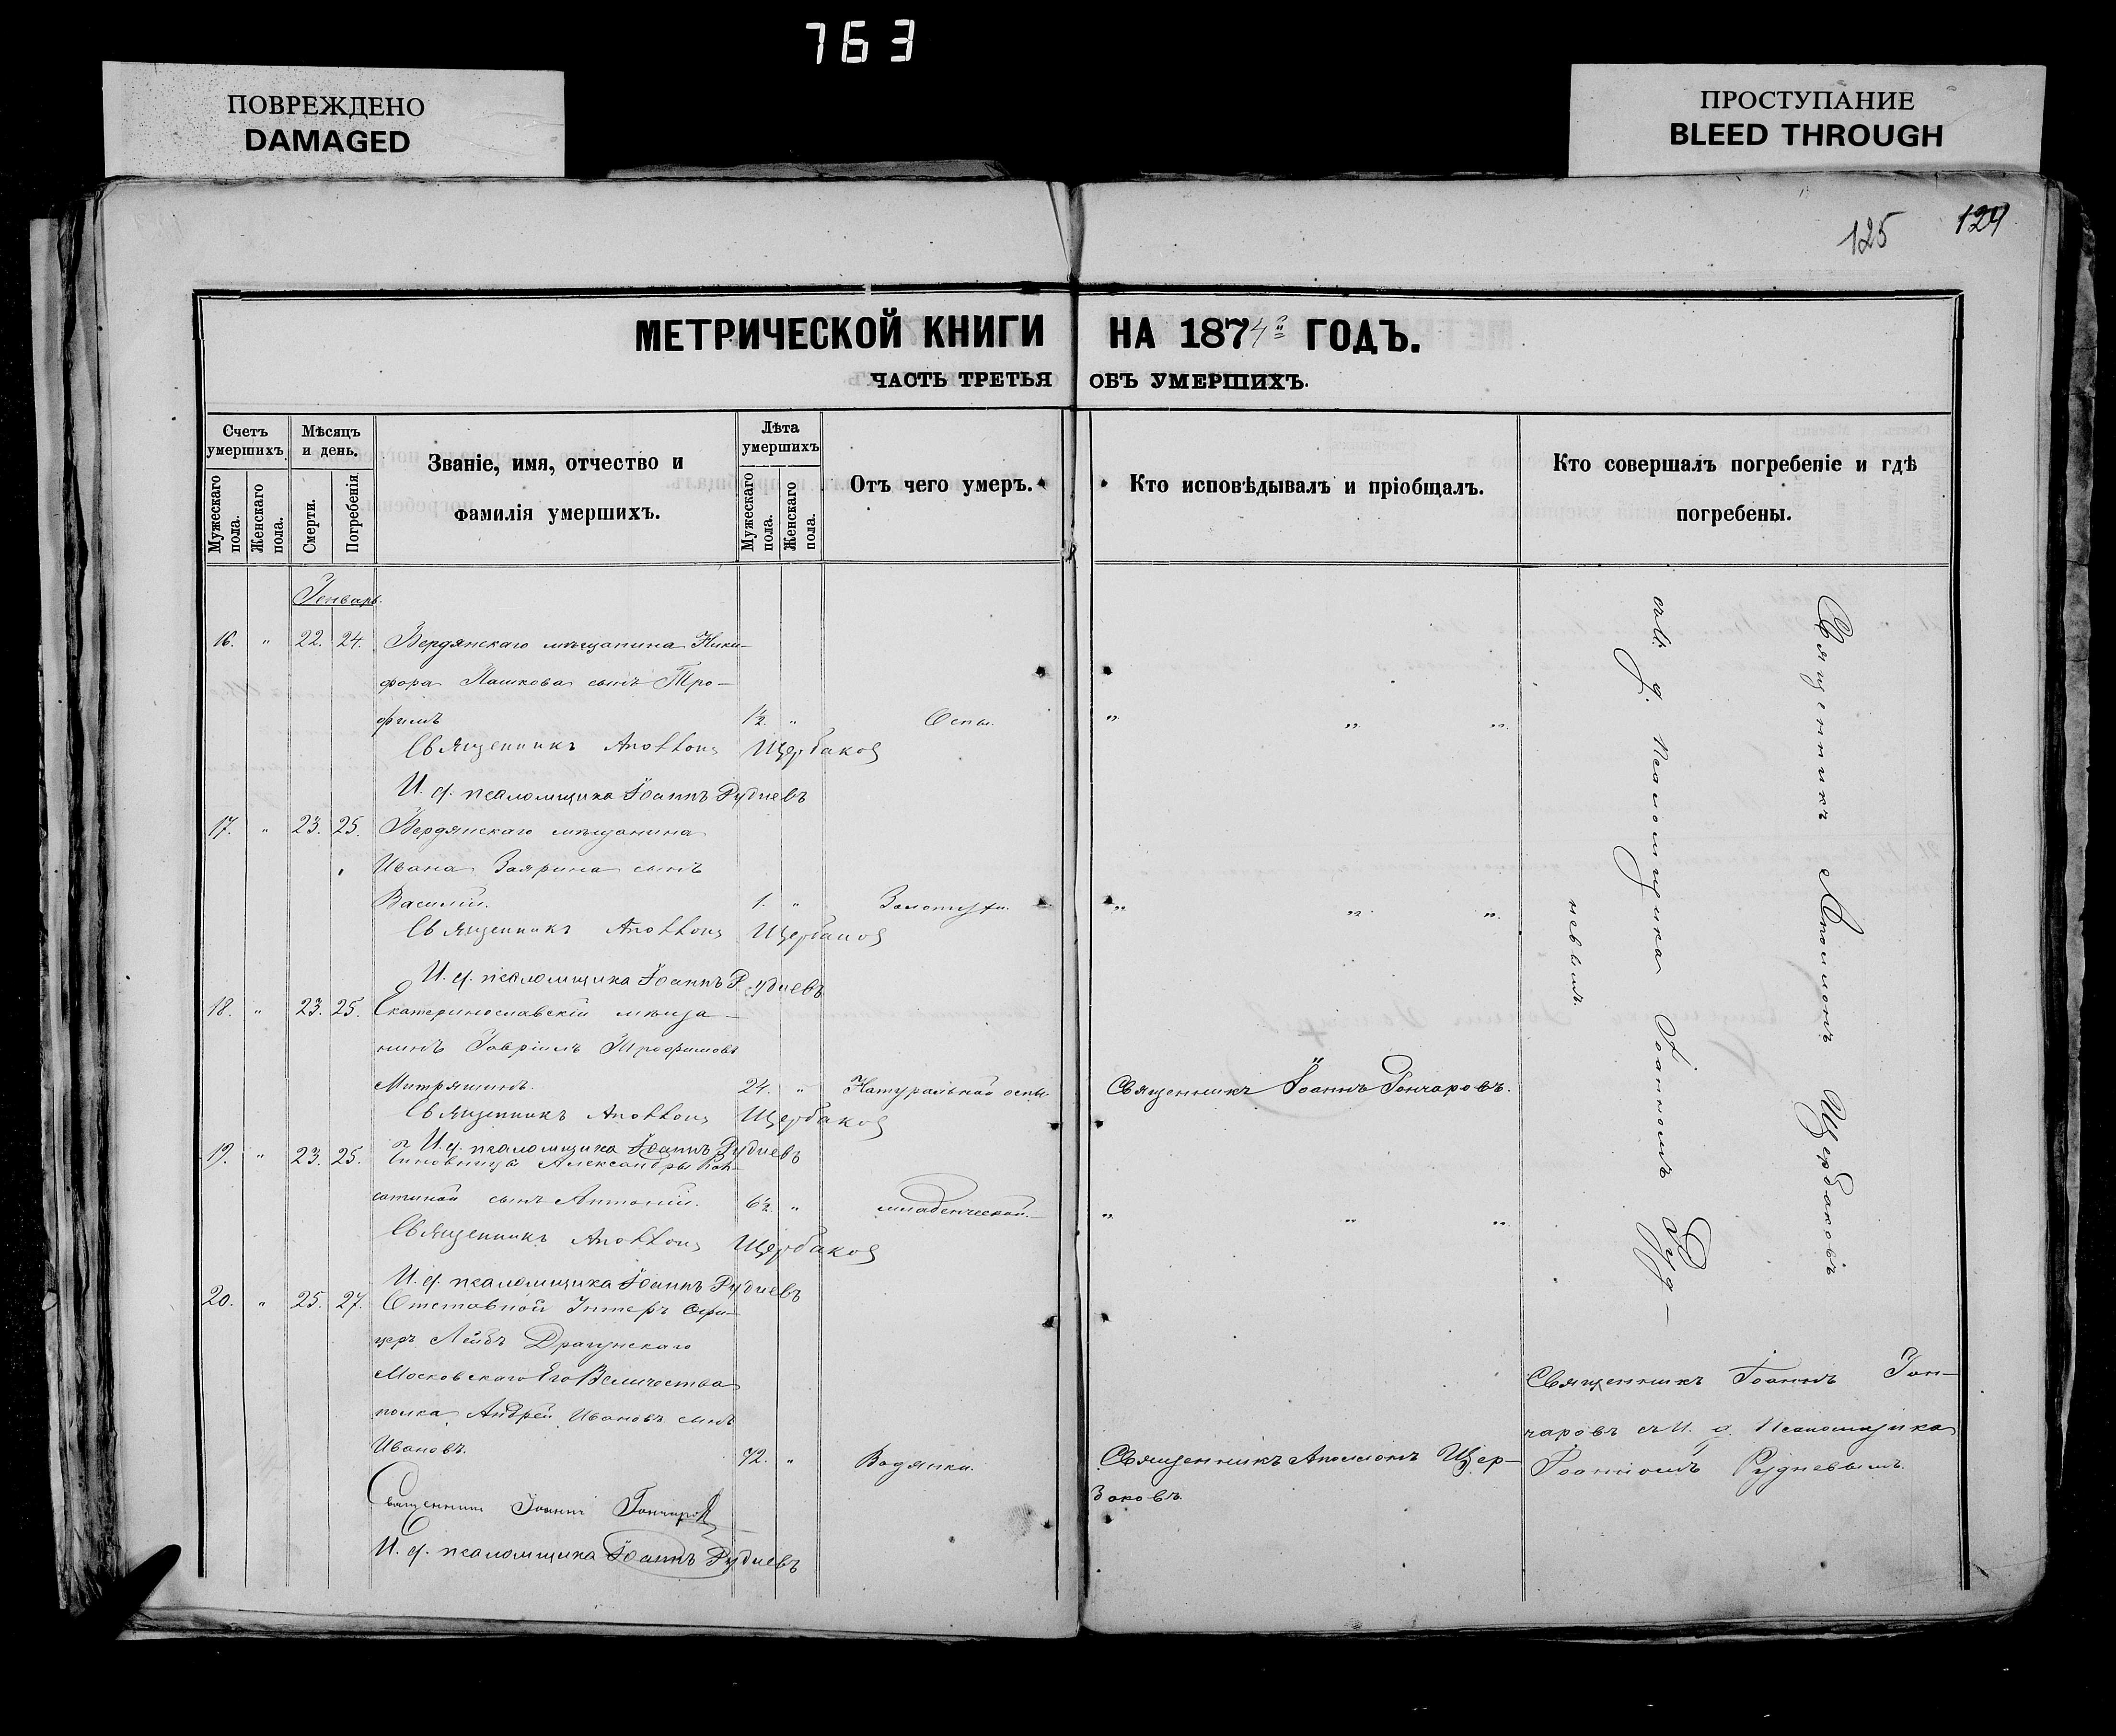 763
ПОВРЕЖДЕНО
DAMAGED
ПРОСТУПАНИЕ
BLEED THROUGH
125
124
МЕТРИЧЕСКОЙ КНИГИ НА 1874й ГОДЪ.
ЧАСТЬ ТРЕТЬЯ ОБЪ УМЕРШИХЪ.
Счетъ умершихъ.
Мужескаго пола.
Женскаго пола.
Мѣсяцъ и день.
Смерти.
Погребенія.
Званіе, имя, отчество и
фамилія умершихъ.
Лѣта умершихъ
Мужескаго пола.
Женскаго пола.
Отъ чего умеръ.
Кто исповѣдывалъ и пріобщалъ.
Кто совершалъ погребеніе и гдѣ
погребены.
Генварь.
16. „ 22. 24. Бердянскаго мѣщанина Ники-
фора Пашкова сынъ Тро-
фимъ 1½. „ Оспы. „ „ „
Священникъ Аполлонъ Щербаковъ
И. д. псаломщика Іоаннъ Рудневъ
17. „ 23. 25. Бердянскаго мѣщанина
Ивана Заярина сынъ
Василій. 1. „ Золотухи. „ „ „
Священникъ Аполлонъ Щербаковъ
И. д. псаломщика Іоаннъ Рудневъ
18. „ 23. 25. Екатеринославскій мѣща-
нинъ Гавріилъ Трофимовъ
Митряшинъ. 24. „ Натуральной оспы. Священникъ Іоаннъ Гончаровъ.
Священникъ Аполлонъ Щербаковъ
И. д. псаломщика Іоаннъ Рудневъ
19. „ 23. 25. Чиновницы Александры
сынъ Антоній. 6½. „ младенческой. „ „ „
Священникъ Аполлонъ Щербаковъ
И. д. псаломщика Іоаннъ Рудневъ
Священникъ Аполлонъ Щербаковъ
съ И. д. Псаломщика Іоанномъ Руд-
невымъ.
20. „ 25. 27. Отставной Унтеръ Офи-
церъ Лейбъ Драгунскаго
Московскаго Его Величества
полка Андрей Ивановъ сынъ
Ивановъ. 72. „ Водянки. Священникъ Аполлонъ Щер-
баковъ.
Священникъ Іоаннъ Гон-
чаровъ съ И. д. Псаломщика
Іоанномъ Рудневымъ.
Священникъ Іоаннъ Гончаровъ
И. д. псаломщика Іоаннъ Рудневъ